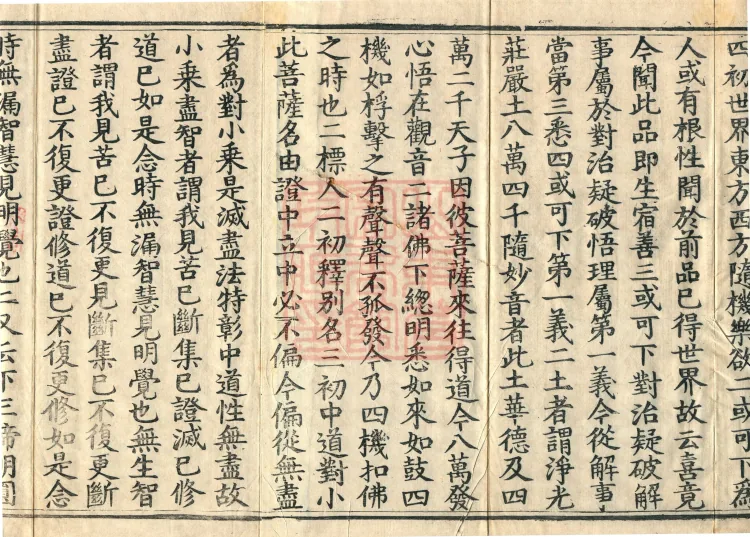 四初世界東方西方隨機樂欲二或可下爲
人或有根性聞於前品已得世界故云喜竟
今聞此品即生宿善三或可下對治疑破解
事屬於對治疑破悟理屬第一義今從解事
當第三悉四或可下第一義二土者謂淨光
莊嚴土八萬四千隨妙音者此土華德及四
萬二千天子因彼菩薩來往得道今八萬發
心悟在觀音二諸佛下總明悉如來如鼓四
機如桴擊之有聲聲不孤發今乃四機扣佛
之時也二標人二初釋別名三初中道對小
此菩薩名由證中立中必不偏今偏從無盡
者為對小乘是滅盡法特彰中道性無盡故
小乘盡智者謂我見苦已斷集已證滅已修
道已如是念時無漏智慧見明覺也無生智
者謂我見苦已不復更見斷集已不復更斷
盡證已不復更證修道已不復更修如是念
時無漏智慧見明覺也二又云下三諦明圓